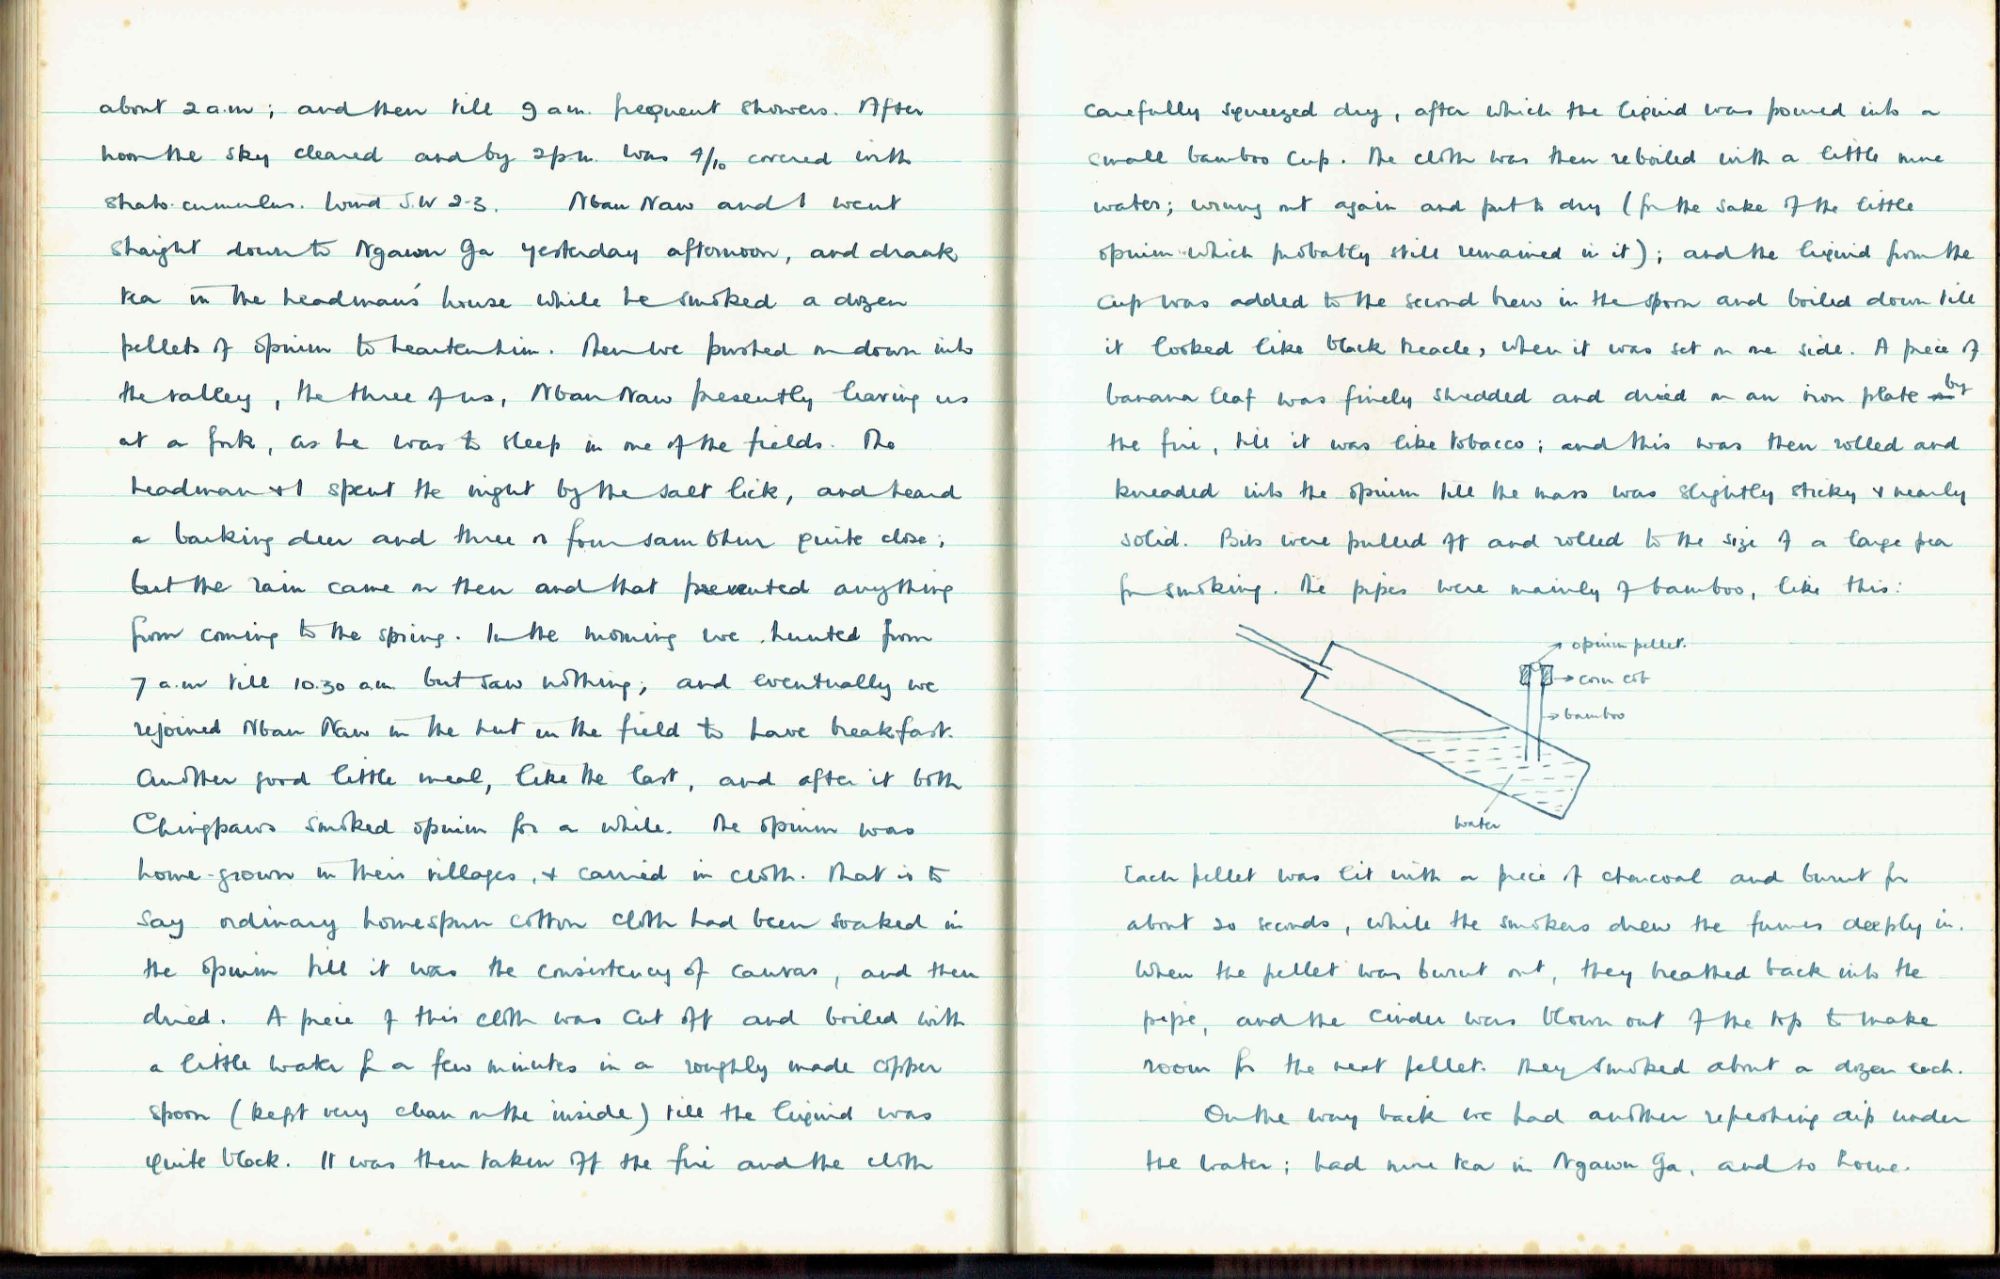 about 2 a.m; and then till 9 am. frequent showers. After
noon the sky cleared and by 2 p.m. was 4/10 covered with
strato-cumulus. Wind S.W 2-3. Nbau Naw and I went
straight down to Ngawn Ga yesterday afternoon, and drank
tea in the headman's house while he smoked a dozen
pellets of opium to hearten him. Then we pushed on down into
the valley, the three of us, Nbau Naw presently leaving us
at a fork, as he was to sleep in one of the fields. The
headman & I spent the night by the salt lick, and heard
a barking deer and three or four sambhur quite close;
but the rain came on then and that prevented anything
from coming to the spring. In the morning we hunted from
7 a.m till 10.30 am but saw nothing; and eventually we
rejoined Nbau Naw in the hut in the field to have breakfast.
Another good little meal, like the last, and after it both
Chingpaws smoked opium for a while. The opium was
home-grown in their villages, & carried in cloth. That is to
say ordinary homespun cotton cloth had been soaked in
the opium till it was the consistency of canvas, and then
dried. A piece of this cloth was cut off and boiled with
a little water for a few minutes in a roughly made copper
spoon (kept very clean on the inside) till the liquid was
quite black. It was then taken off the fire and the cloth
carefully squeezed dry, after which the liquid was poured into a
small bamboo cup. The cloth was then reboiled with a little more
water; wrung out again and put to dry (for the sake of the little
opium which probably still remained in it); and the liquid from the
cup was added to the second brew in the spoon and boiled down till
it looked like black treacle, when it was set on one side. A piece of
banana leaf was finely shredded and dried on an iron plate by
the fire, till it was like tobacco; and this was then rolled and
kneaded into the opium till the mass was slightly sticky & nearly
solid. Bits were pulled off and rolled to the size of a large pea
for smoking. The pipes were mainly of bamboo, like this:
opium pellet.
corn cob
bamboo
water
Each pellet was lit with a piece of charcoal and burnt for
about 20 seconds, while the smokers drew the fumes deeply in.
When the pellet was burnt out, they breathed back into the
pipe, and the cinder was blown out of the top to make
room for the next pellet. They smoked about a dozen each.
On the way back we had another refreshing dip under
the water; had more tea in Ngawn Ga, and so home.